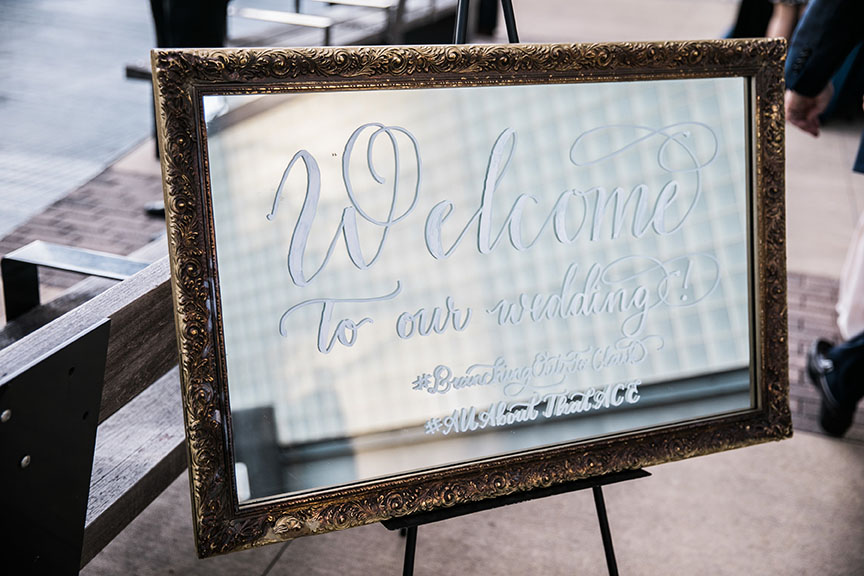 Welcome
To our wedding!
#BrunchingOut
#AllAboutThatACE